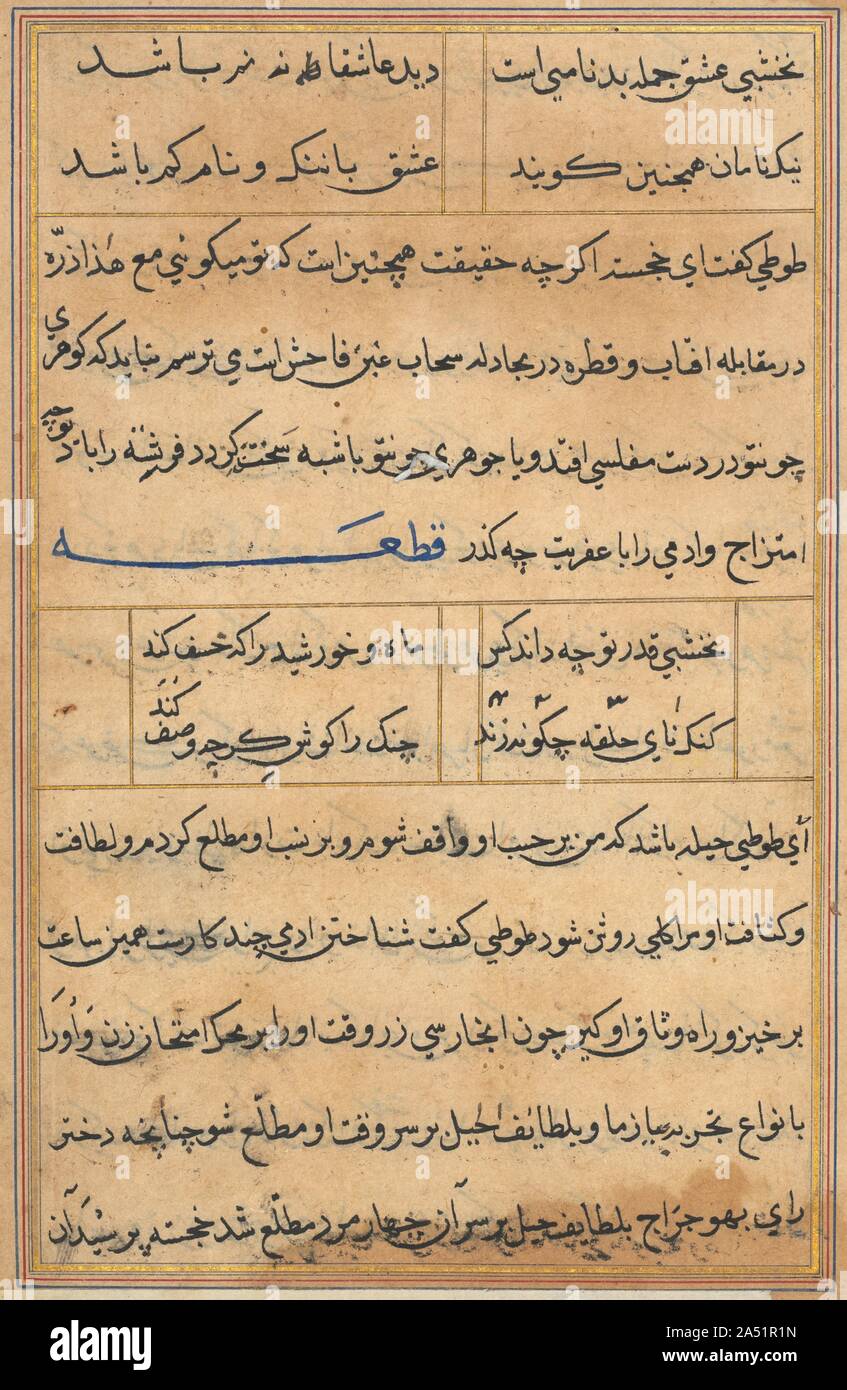 نخشبي عشق جمله بدناميي است دید عاشقا نه نم باشد
نیک نامان همچنین کویند عشق باننک و نام کم باشد
طوطي کفت اي خجسته اکرچه حقیقت همچنین است که تو میکوئي مع هٰذا ذرّه
در مقابله افتاب و قطره در مجادله سحاب غبن فاحش است مي ترسم نباید که کوهري
چو نتو در دست مفلسي افتد و یا جوهري چو نتو باشبه سخت کردد فرشته را با دیو چه
امتزاج و ادمي را با عفریت چه کذر قطعه
نخشبي قدر تو چه داند کس ماه و خورشید را که خسف کند
کنک نای حلقه چکونه زند چنک را کوش کر چه وصف کند
أي طوطي حیله باشد که من بر حسب او واقف شوم و بر نسب او مطلع کردم و لطافت
و کثافت او مرا کلي روشن شود طوطي کفت شناختن ادمي چند کارست همین ساعت
بر خیز و راه وثاق او کیر چون انجا رسي زر وقت او را بر محک امتحان زن و أورا
با نواع تجربه بیازما و بلطائف الحیل بر سر وقت او مطلّع شو چنانچه دختر
راي بهوجراج بلطایف حیل بر سر آن چهار مرد مطلّع شد خجسته پرسید آن
alamy
Image ID: 2A51R1N
www.alamy.com